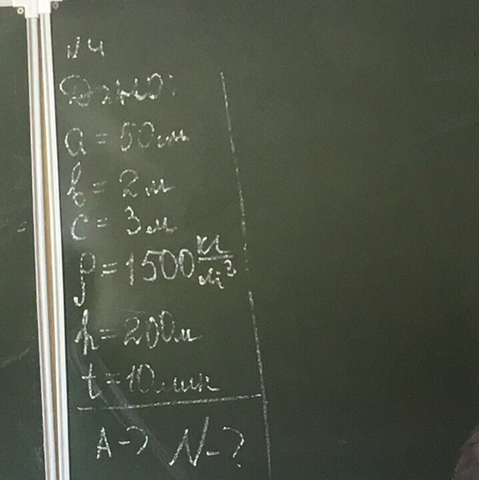 №4
Дано:
a = 50см
b = 2м
c = 3м
ρ = 1500 кг/м³
h = 200м
t = 10мин
A-? N-?